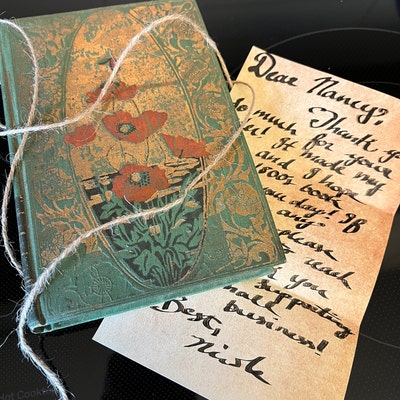 Dear Nancy,
Thank y
so much for your
! It made my
and I hope
1800s book
you day! If
any
please
reach
you
supporting
small
business!
Best,
Nicole
Hot Cooktop